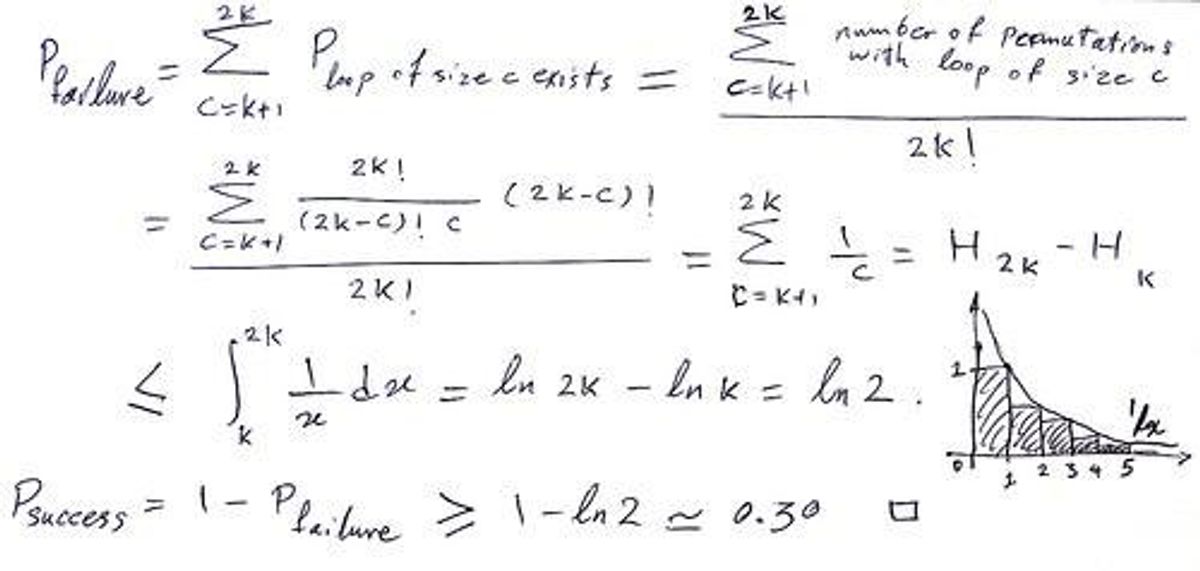 P_failure = \sum_{c=k+1}^{2k} P_{loop of size c exists} = \frac{\sum_{c=k+1}^{2k} number of permutations with loop of size c}{2k!}
= \frac{\sum_{c=k+1}^{2k} \frac{2k!}{(2k-c)! c} (2k-c)!}{2k!} = \sum_{c=k+1}^{2k} \frac{1}{c} = H_{2k} - H_k
≤ \int_k^{2k} \frac{1}{x} dx = ln 2k - ln k = ln 2.
1
1/x
0 1 2 3 4 5
P_success = 1 - P_failure ≥ 1 - ln 2 ≃ 0.30 □